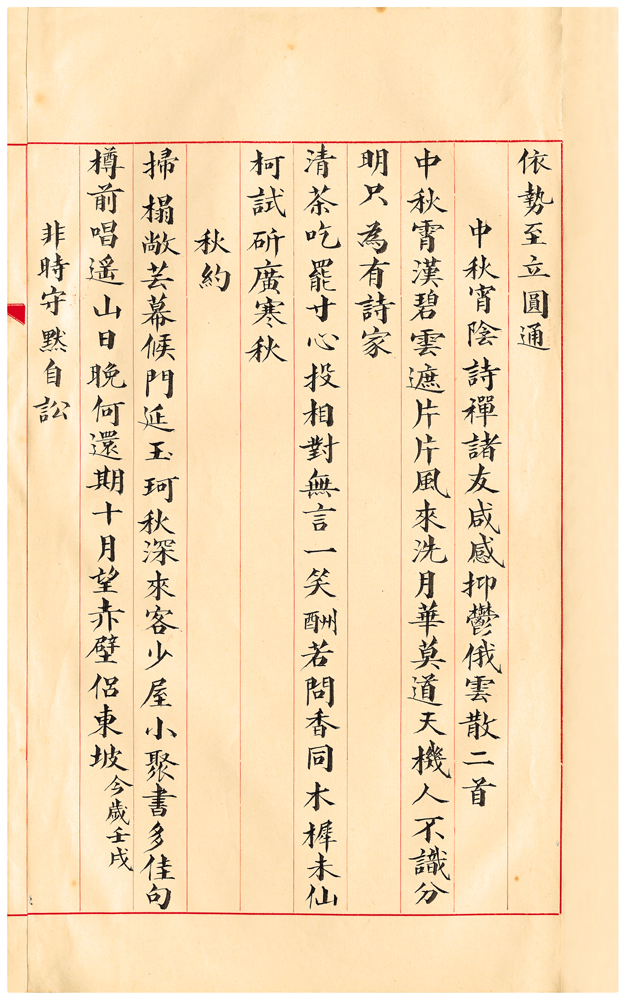 依勢至立圓通
中秋宵陰詩禪諸友咸感抑鬱俄雲散二首
中秋霄漢碧雲遮片片風來洗月華莫道天機人不識分
明只為有詩家
清茶吃罷寸心投相對無言一笑酬若問香同木樨未仙
柯試斫廣寒秋
秋約
掃榻敞芸幕候門延玉珂秋深來客少屋小聚書多佳句
樽前唱遙山日晚何還期十月望赤壁侶東坡今歲壬戌
非時守默自訟